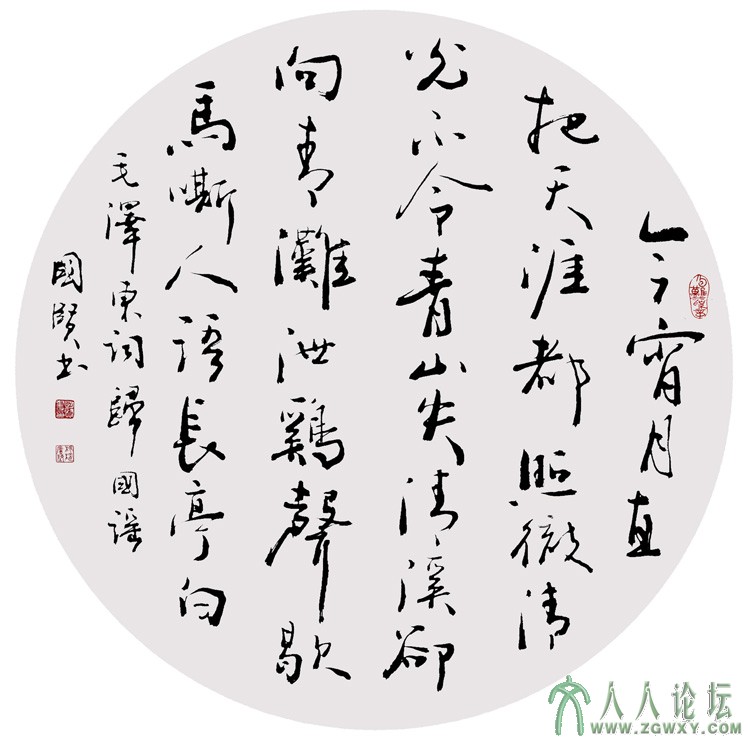 今宵月直
把天涯都照徹清
光不令青山失清溪卻
向青灘泄鷄聲歇
馬嘶人語長亭白
毛澤東詞歸國謠
國賢书
人人论坛
WWW.ZGWXY.COM